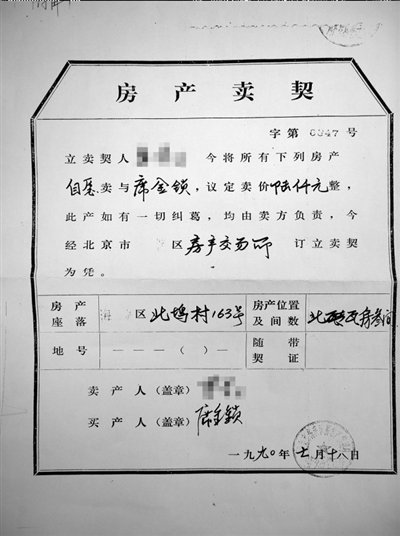 房产卖契
字第 6347 号
立卖契人 今将所有下列房产
自愿卖与席金锁,议定卖价陆仟元整,
此产如有一切纠葛,均由卖方负责,今
经北京市 区房产交易所 订立卖契
为凭。
房产座落 海 区北坞村163号 房产位置及间数 北 房叁间
地号 ———( )— 随带契证
卖产人(盖章)
买产人(盖章)席金锁
一九九〇年七月十八日